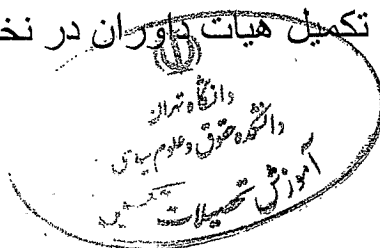 تکمیل هیات داوران در نخ
دانشگاه تهران
دانشکده حقوق و علوم سیاسی
آموزش تحصیلات تکمیلی